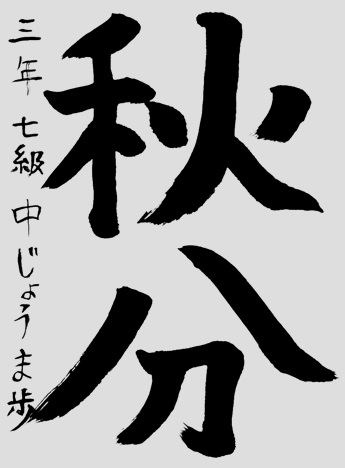 秋分
三年 七級 中じょうま歩